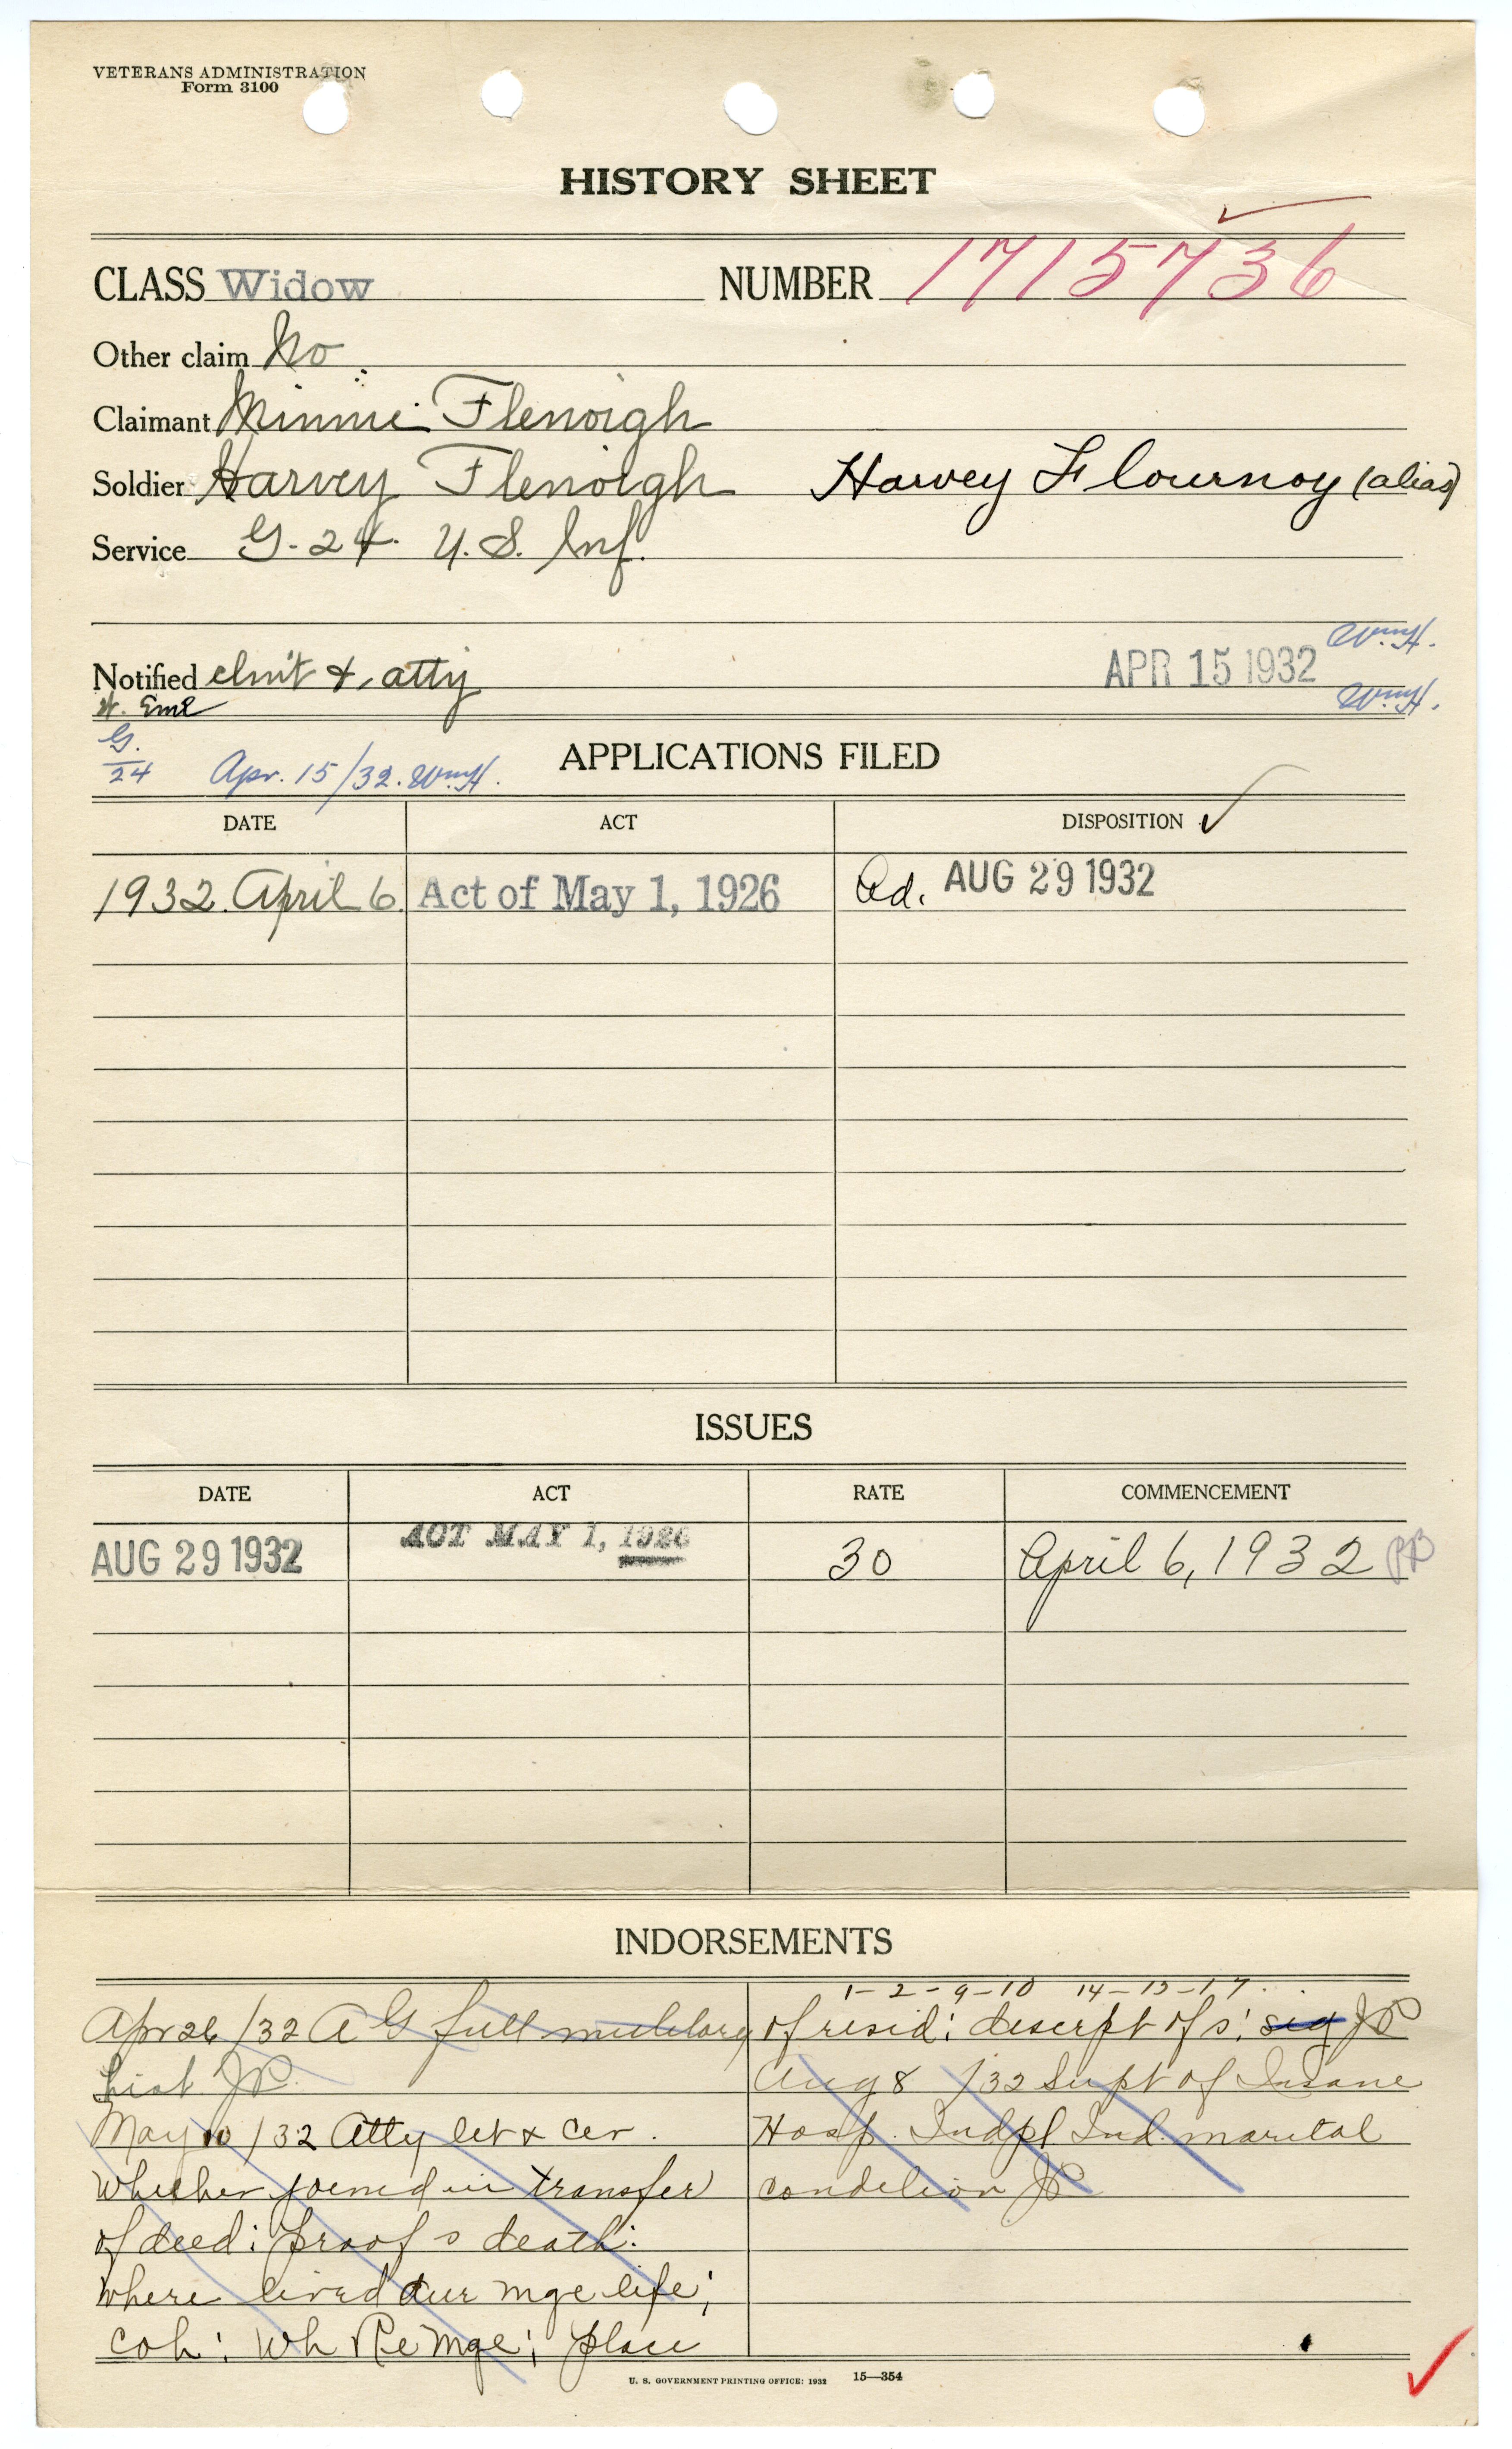 VETERANS ADMINISTRATION
Form 3100
HISTORY SHEET
CLASS Widow NUMBER 1715736
Other claim No
Claimant Minnie Flenoigh
Soldier Harvey Flenoigh Harvey Flournoy (alias)
Service G-24 U.S. Inf.
Wm.H.
Notified clmt & atty APR 15 1932
Wm.H.
G.
24 Apr. 15/32. Wm.H.
APPLICATIONS FILED
DATE ACT DISPOSITION ✓
1932 April 6 Act of May 1, 1926 Ad. AUG 29 1932
ISSUES
DATE ACT RATE COMMENCEMENT
AUG 29 1932 ACT MAY 1, 1926 30 April 6, 1932
INDORSEMENTS
Apr 26/32 A G full military
hist JP
May 10/32 Atty let & cer.
whether joined in transfer
of deed; proof s death:
where lived dur mge life;
coh: wh Re mge; place
1-2-9-10 14-15-17
of resid; descrpt of s; sig JP
Aug 8/32 Supt of Insane
Hosp. Indpl Ind. marital
condition JP
U. S. GOVERNMENT PRINTING OFFICE: 1932 15—354